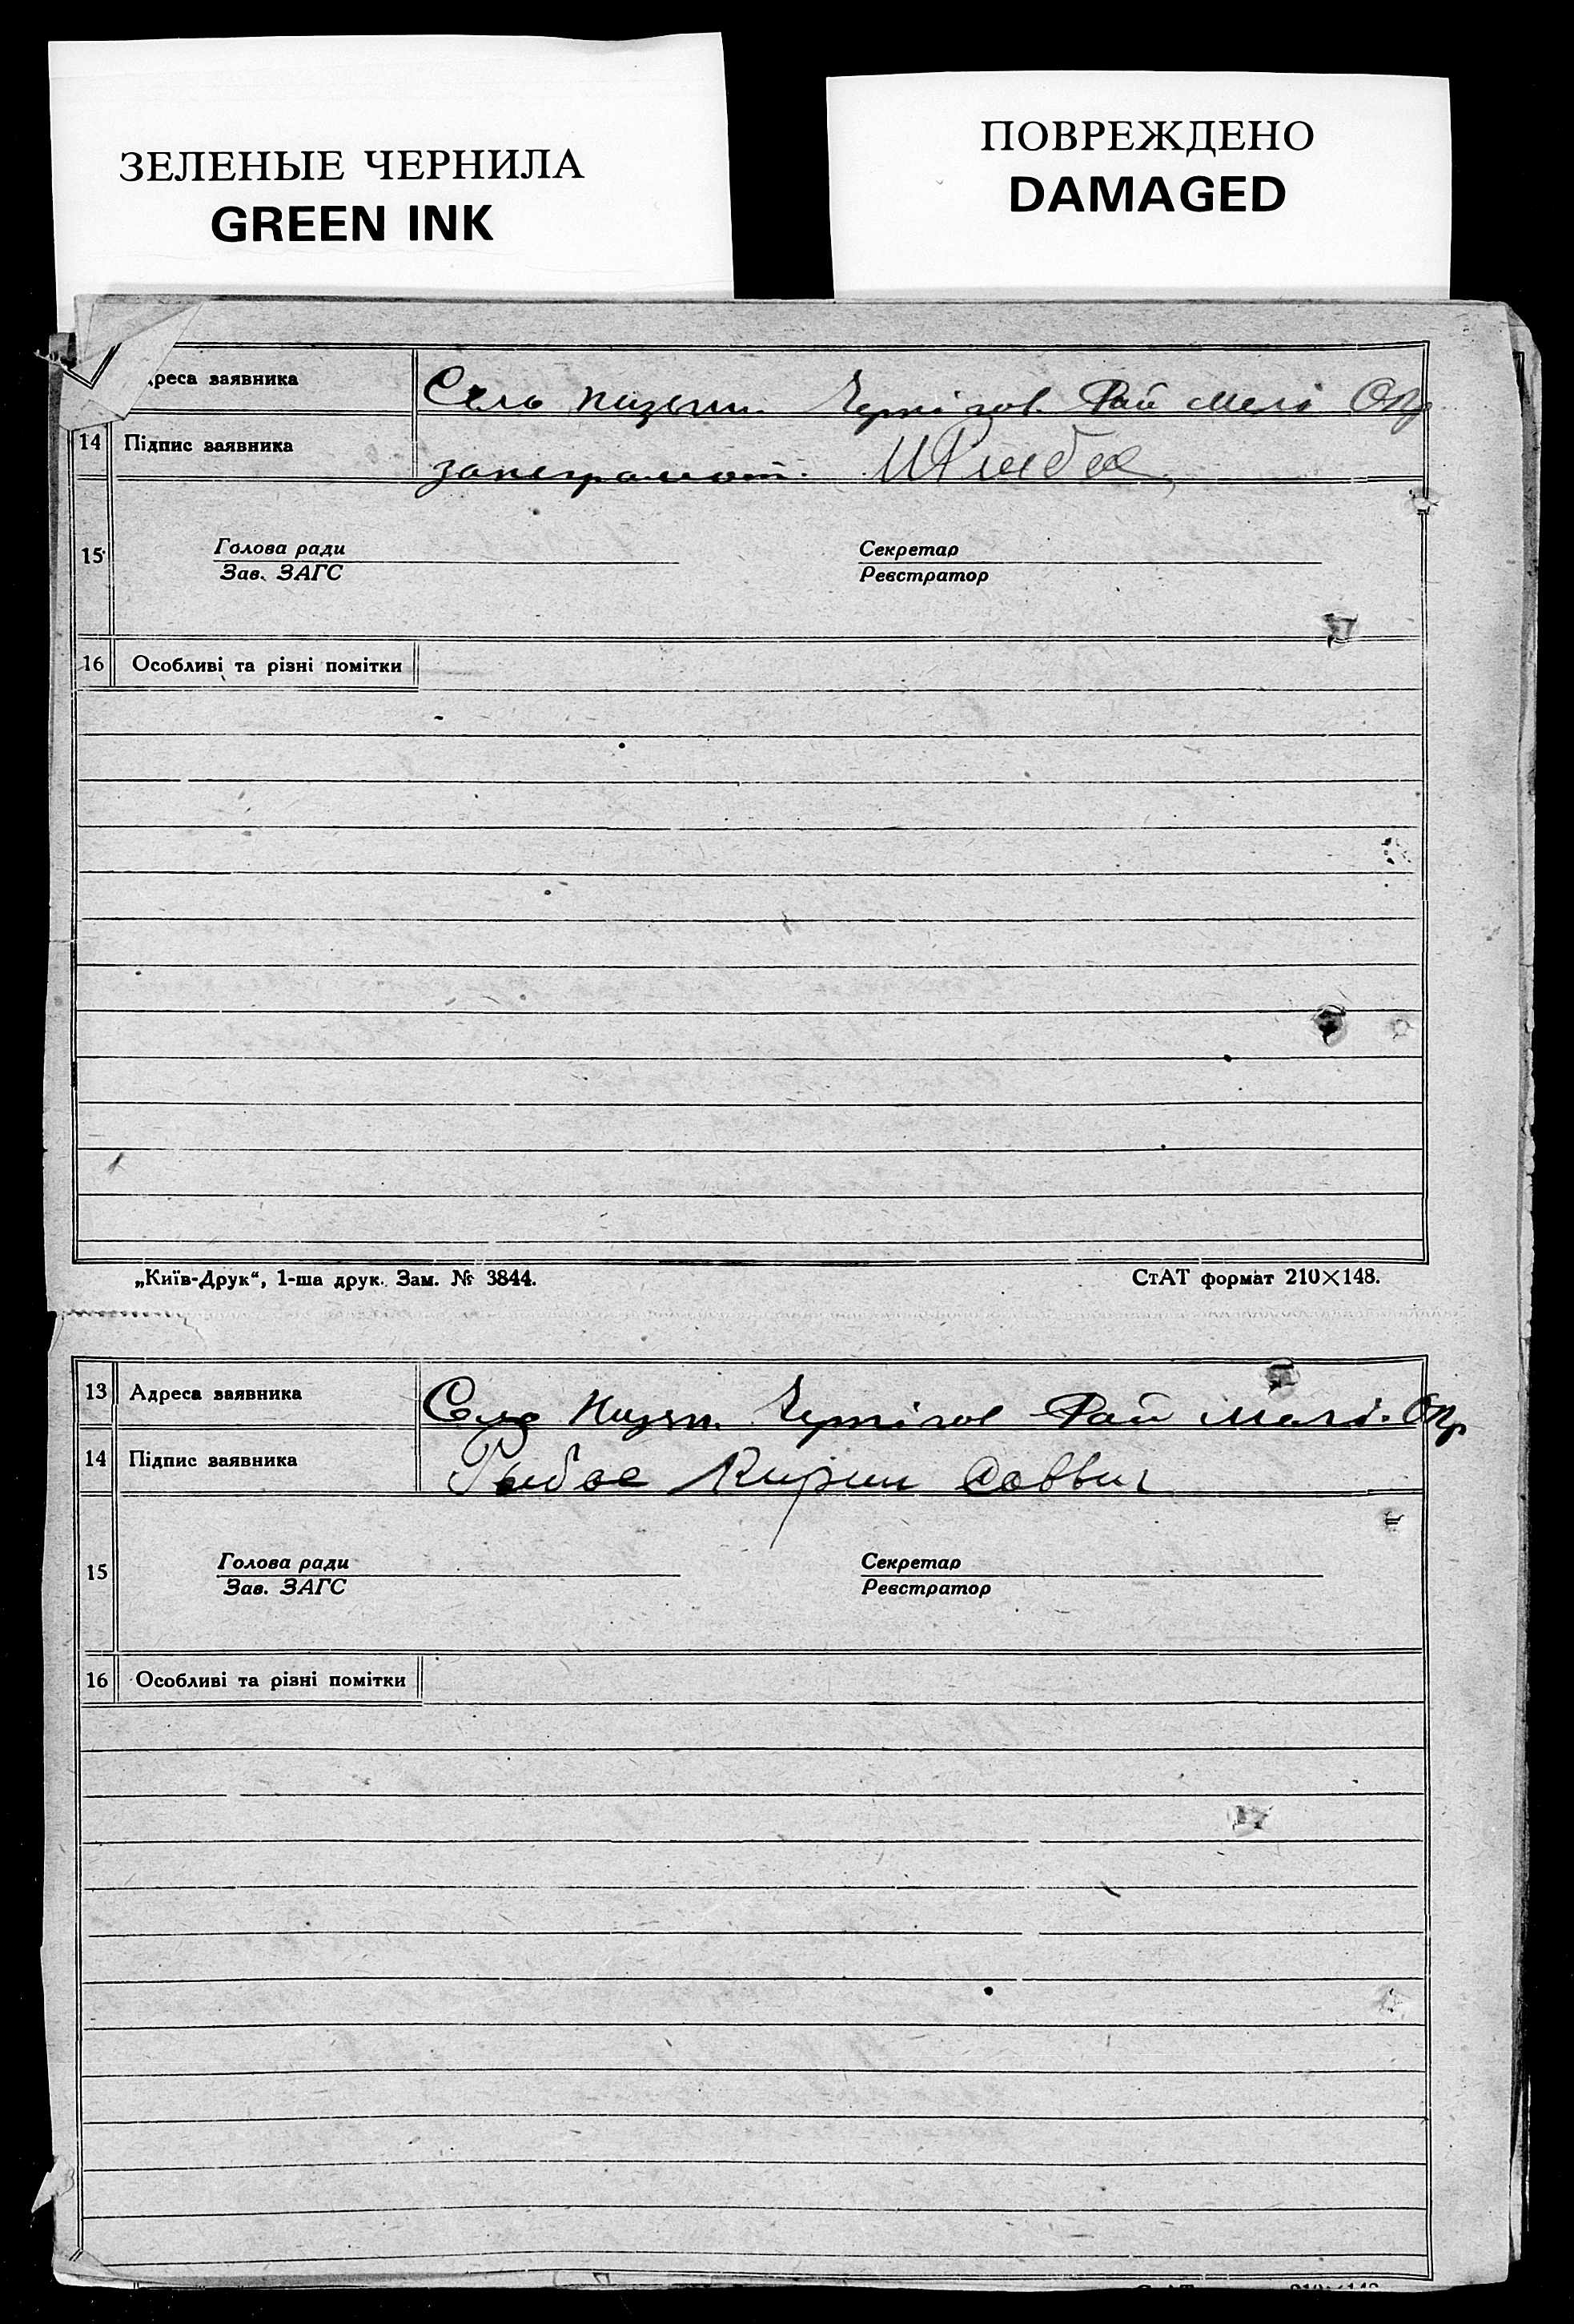 ЗЕЛЕНЫЕ ЧЕРНИЛА
GREEN INK
ПОВРЕЖДЕНО
DAMAGED
дреса заявника Село Низян. Чернігов. Рай Мелі Окр
14 Підпис заявника за неграмот.
15 Голова ради Секретар
Зав. ЗАГС Реєстратор
16 Особливі та різні помітки
„Київ-Друк“, 1-ша друк. Зам. № 3844. СтАТ формат 210×148.
13 Адреса заявника Село Низян. Чернігов Рай Мелі. Окр
14 Підпис заявника Рыбос Кирил Саввич
15 Голова ради Секретар
Зав. ЗАГС Реєстратор
16 Особливі та різні помітки